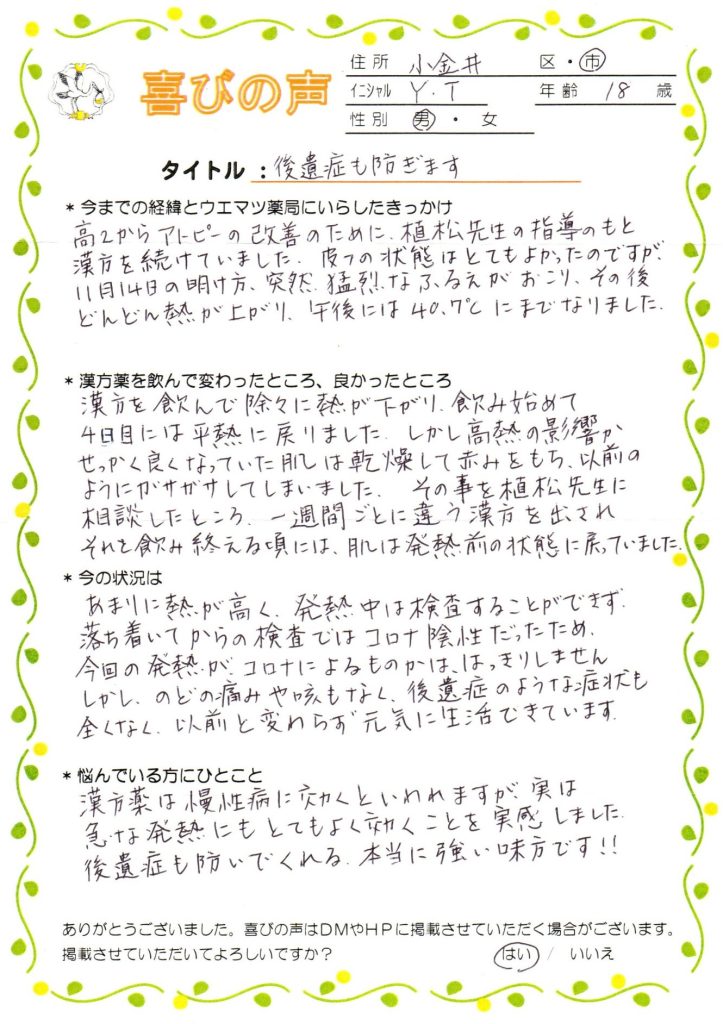 喜びの声
住所 小金井 区・市
イニシャル Y.T 年齢 18 歳
性別 男・女
タイトル：後遺症も防ぎます
＊今までの経緯とウエマツ薬局にいらしたきっかけ
高2からアトピーの改善のために、植松先生の指導のもと
漢方を続けていました。皮フの状態はとてもよかったのですが、
11月14日の明け方、突然、猛烈なふるえがおこり、その後
どんどん熱が上がり、午後には40.7℃にまでなりました。
＊漢方薬を飲んで変わったところ、良かったところ
漢方を飲んで除々に熱が下がり、飲み始めて
4日目には平熱に戻りました。しかし高熱の影響か
せっかく良くなっていた肌は乾燥して赤みをもち、以前の
ようにガサガサしてしまいました。その事を植松先生に
相談したところ、一週間ごとに違う漢方を出され
それを飲み終える頃には、肌は発熱前の状態に戻っていました。
＊今の状況は
あまりに熱が高く、発熱中は検査することができず、
落ち着いてからの検査ではコロナ陰性だったため、
今回の発熱が、コロナによるものかは、はっきりしません
しかし、のどの痛みや咳もなく、後遺症のような症状も
全くなく、以前と変わらず元気に生活できています。
＊悩んでいる方にひとこと
漢方薬は慢性病に効くといわれますが、実は
急な発熱にもとてもよく効くことを実感しました。
後遺症も防いでくれる、本当に強い味方です!!
ありがとうございました。喜びの声はDMやHPに掲載させていただく場合がございます。
掲載させていただいてよろしいですか？ はい / いいえ